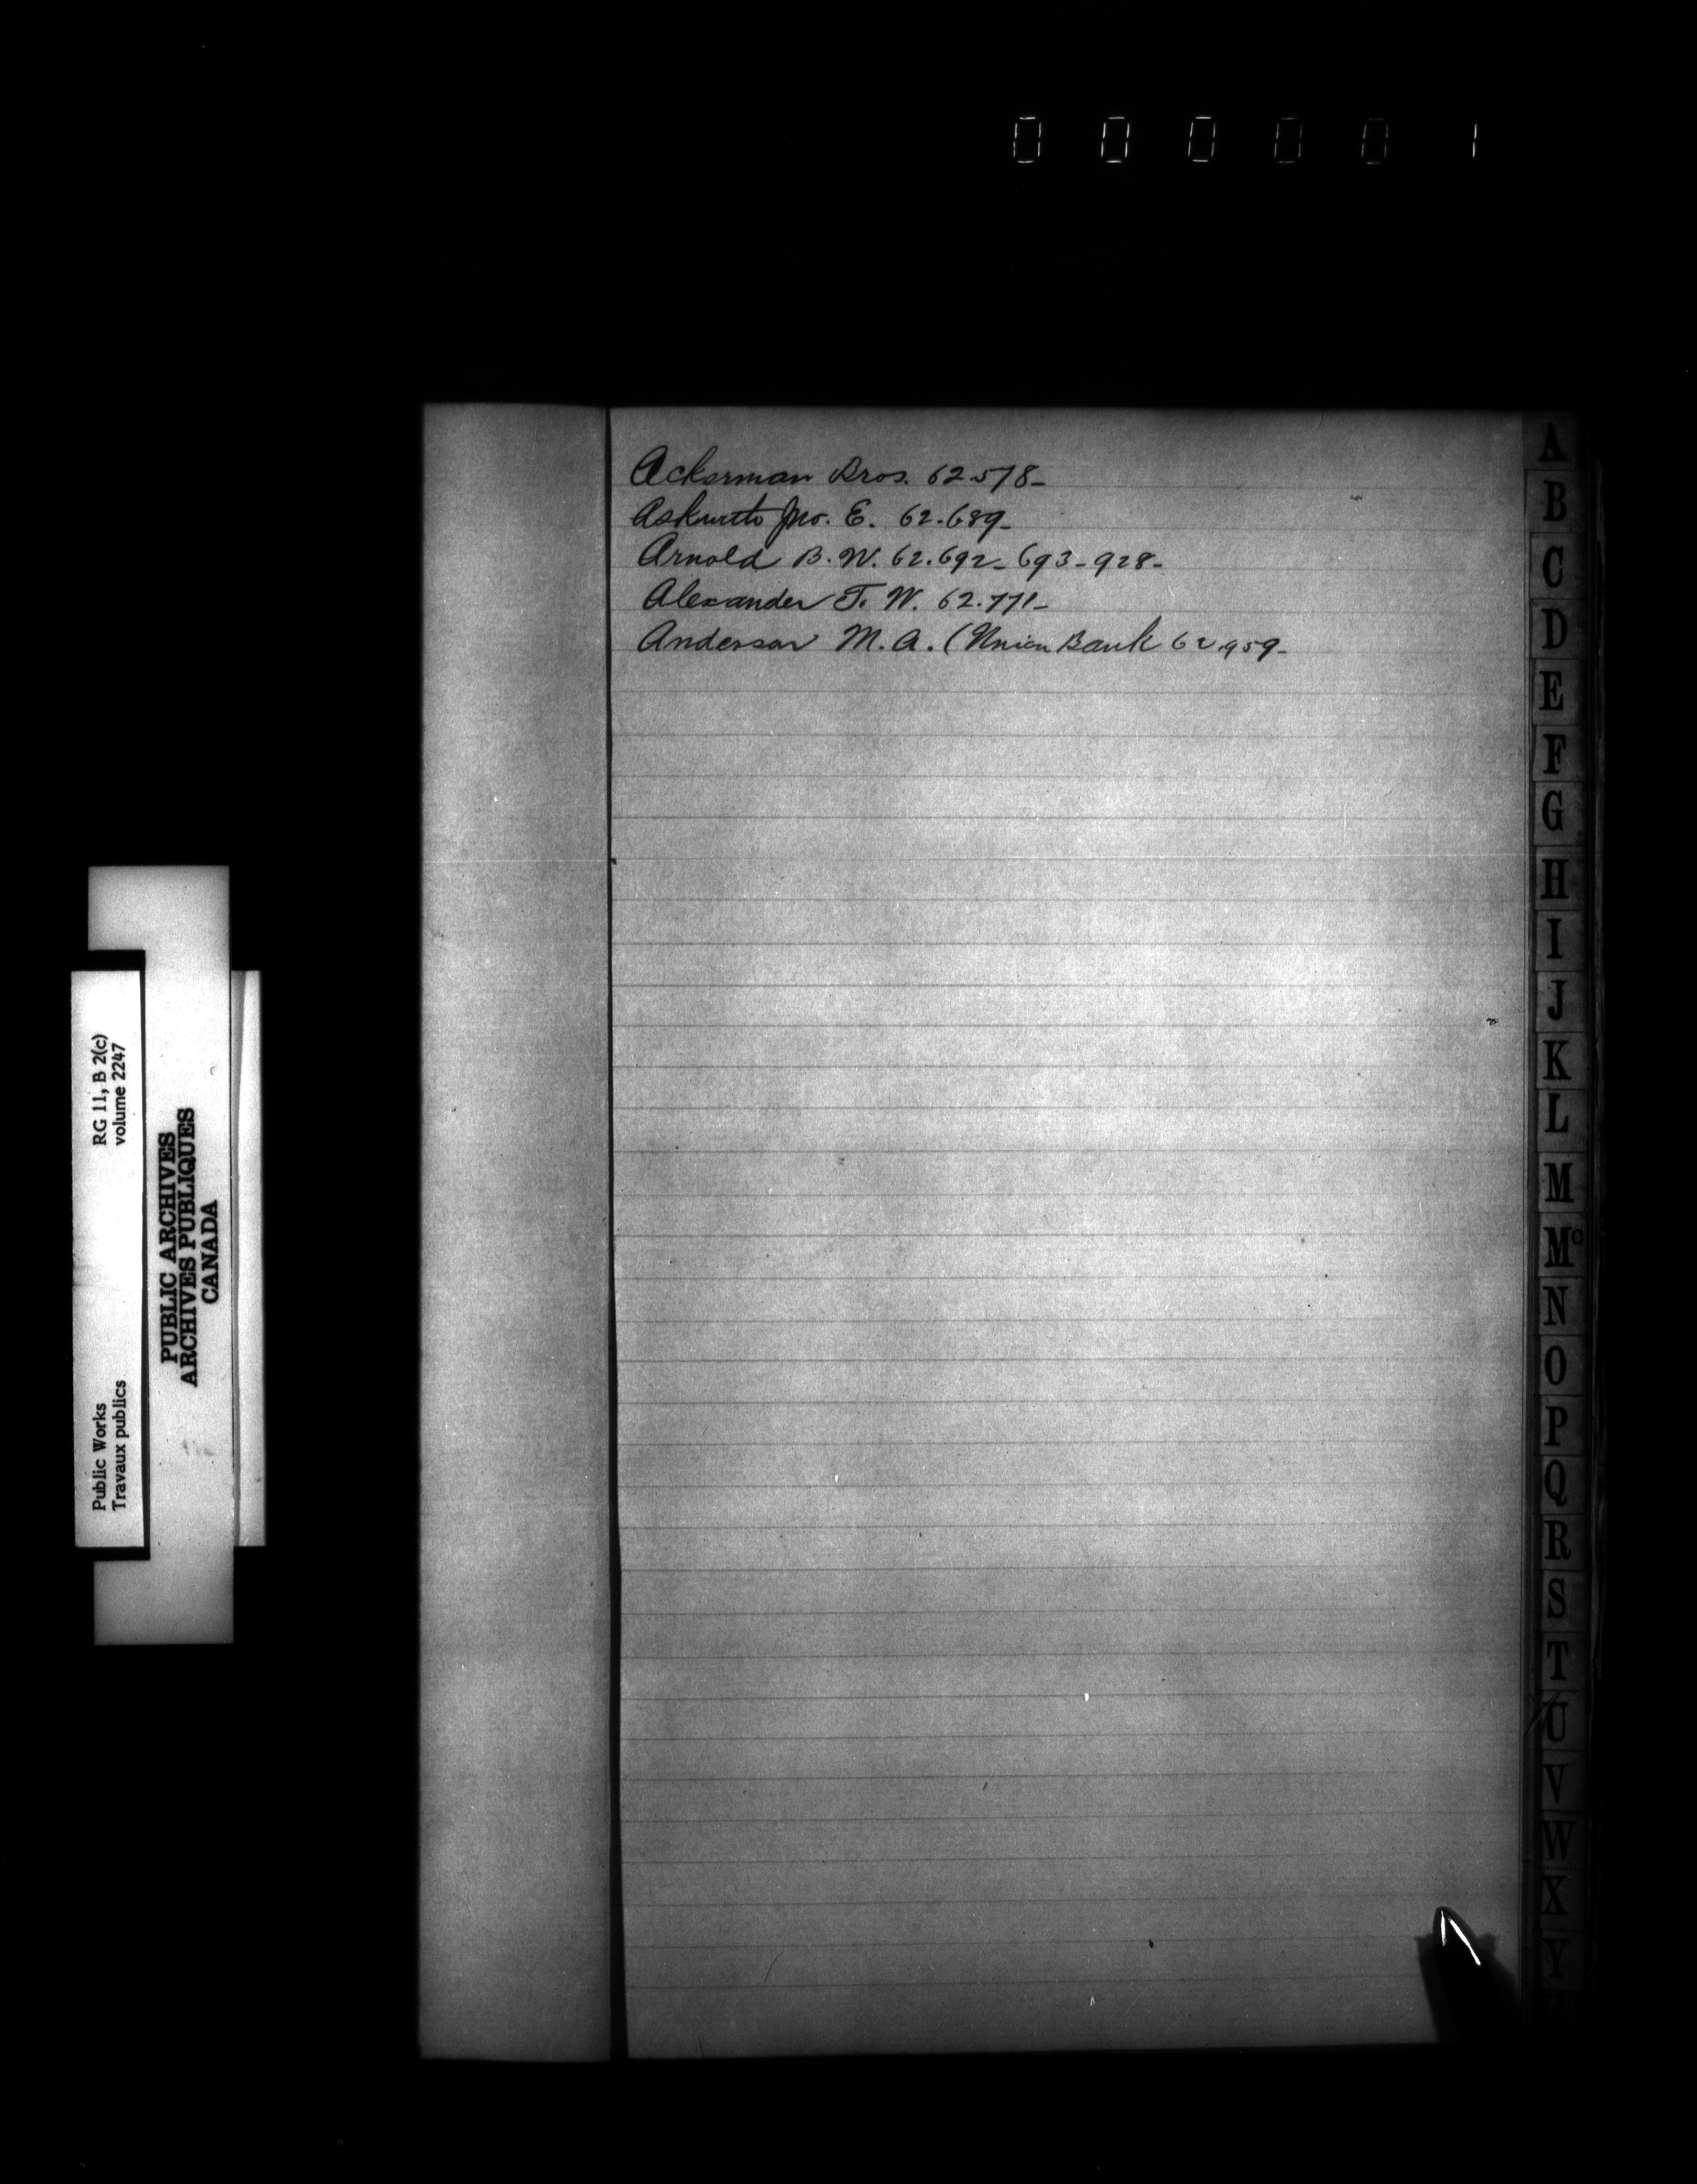 000001
Ackerman Bros. 62.578-
Askwith Jno. E. 62.689-
Arnold B. W. 62.692- 693- 928-
Alexander T. W. 62.771-
Anderson M. A. (Union Bank 62.959-
A
B
C
D
E
F
G
H
I
J
K
L
M
Mc
N
O
P
Q
R
S
T
U
V
W
X
Y
Public Works RG 11, B 2(c)
Travaux publics volume 2247
PUBLIC ARCHIVES
ARCHIVES PUBLIQUES
CANADA